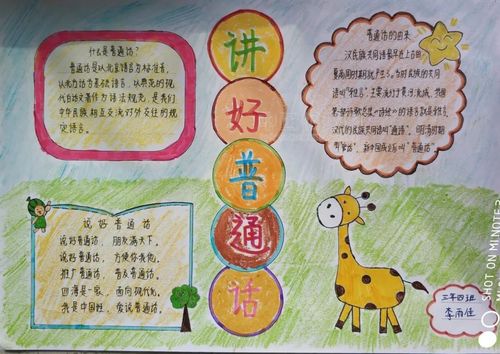 讲
好
普
通
话
什么是普通话?
普通话是以北京语音为标准音,
以北方话为基础语言,以典范的现
代白话文著作为语法规范,是我们
中华民族相互交流对外交往的规
定语言。
普通话的由来
汉民族共同语最早在上古的
夏商周时期就产生了。当时民族的共同
语叫“雅言”,主要流行于黄河流域,我国
第一部诗歌总集《诗经》的语言就是雅言。
汉代的民族共同语叫“通语”,明清时期
叫“官话”,新中国成立后叫“普通话”。
说好普通话
说好普通话,朋友满天下。
说好普通话,方便你我他。
推广普通话,普及普通话。
四海是一家,面向现代化。
我是中国娃,爱说普通话。
三年四班
李雨佳
SHOT ON MI NOTE 3